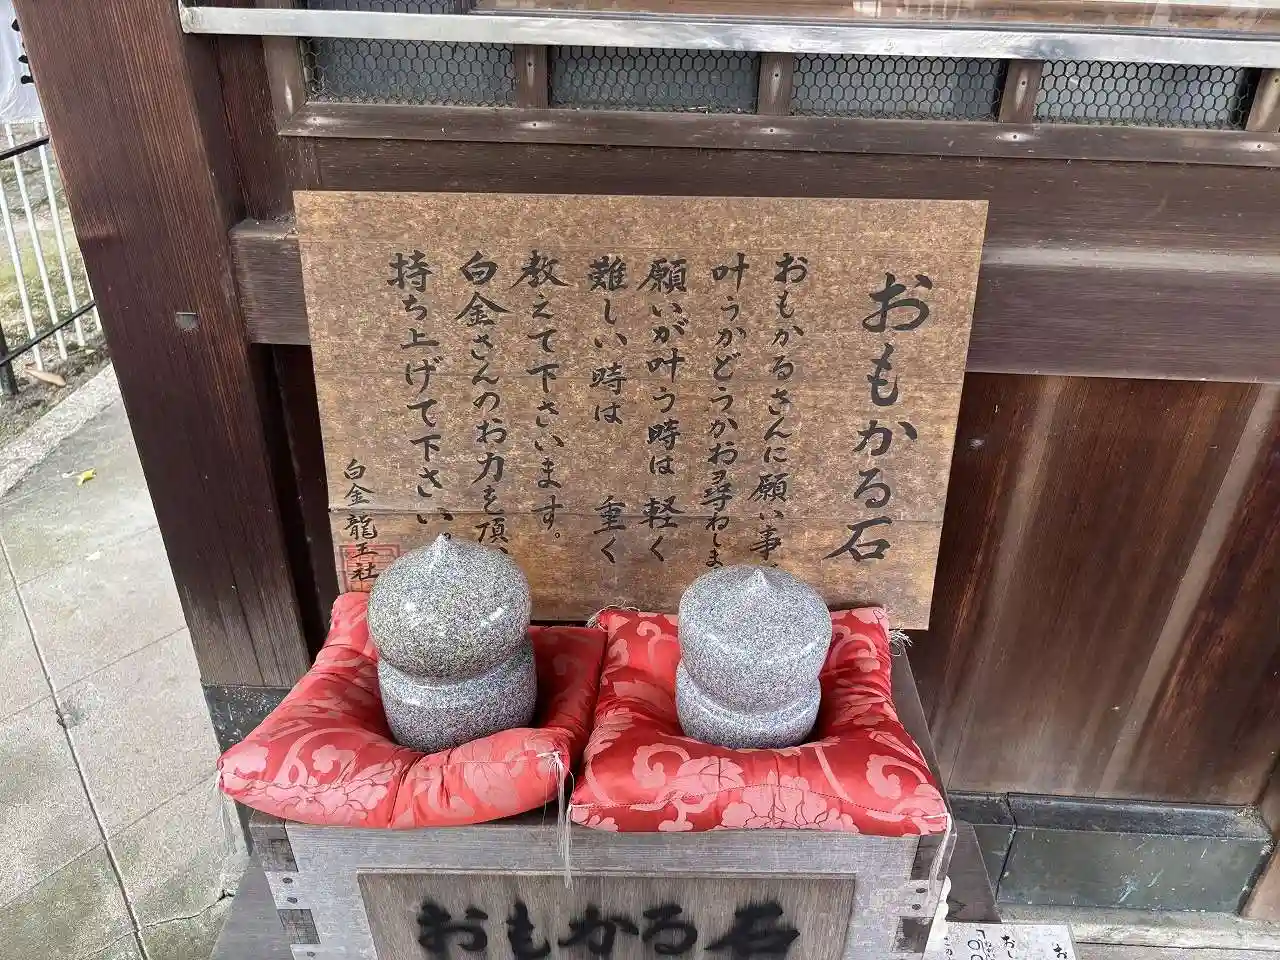 おもかる石
おもかるさんに願い事
叶うかどうかお尋ねしま
願いが叶う時は 軽く
難しい時は 重く
教えて下さいます。
白金さんのお力を頂
持ち上げて下さい。
白金龍王社
おもかる石